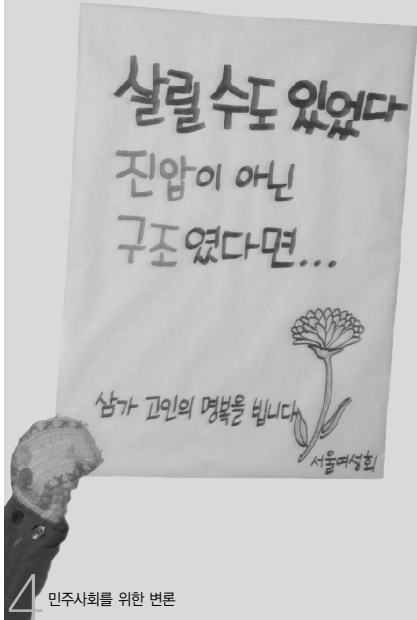 살릴 수도 있었다
진압이 아닌
구조였다면...
삼가 고인의 명복을 빕니다
서울여성회
4 민주사회를 위한 변론